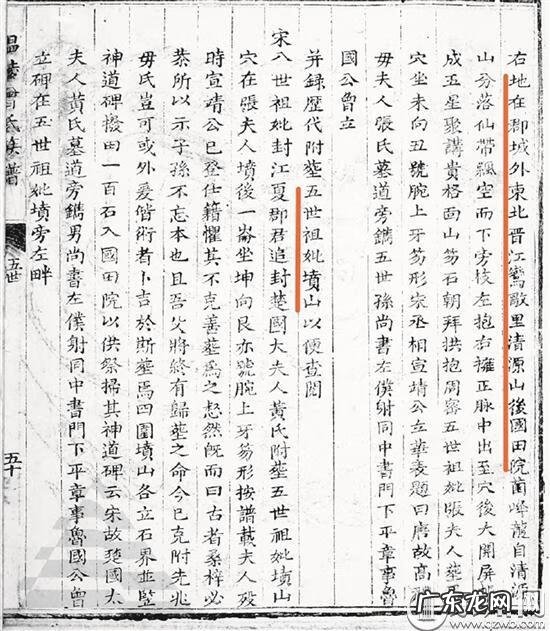 右地在郡城外東北晋江鸞歌里清源山後國田院蘭峰龍自清源
山分落仙帶飄空而下旁枝左抱右擁正脉中出至穴後大開屏
成五星聚講貴格面山笏石朝拜拱抱周密五世祖妣張夫人塟
穴坐未向丑號腕上牙笏形宋丞相宣靖公立華表題曰唐故高
毋夫人張氏墓道旁鐫五世孫尚書左僕射同中書門下平章事魯
國公曾立
并録歷代附塟五世祖妣墳山以便查閱
宋八世祖妣封江夏郡君追封楚國大夫人黃氏附塟五世祖妣墳山
穴在張夫人墳後一崙坐坤向艮亦號腕上牙笏形按譜載夫人殁
時宣靖公已登仕籍懼其不克善塟爲之愁然旣而曰古者桑梓必
恭所以示子孫不忘本也且吾父將終有歸塟之命今已克附先兆
毋氏豈可或外爰偕術者卜吉於斯塟焉四圍墳山各立石界並竪
神道碑撥田一百石入國田院以供祭掃其神道碑云宋故楚國太
夫人黃氏墓道旁鐫男尚書左僕射同中書門下平章事魯國公曾
立碑在五世祖妣墳旁左畔
溫陵曾氏族譜
五世
五十
广东龙网